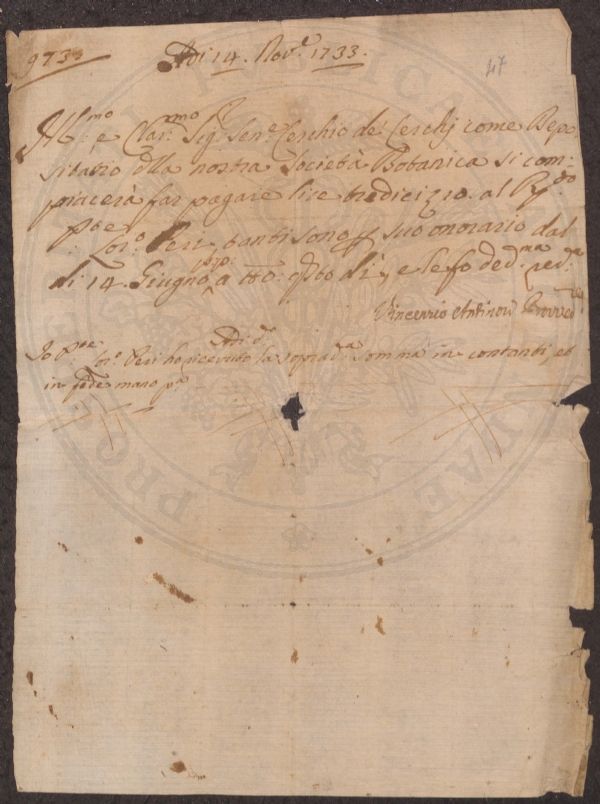 9733
Adi 14. Nov.e 1733.
47
Ill.mo e Clar.mo Sig. Sen.e Cerchio de Cerchj come Depo
sitario dlla nostra Società Botanica si com:
piacerà far pagare lire tredici 10. al R.do
Pre Lor.o Peri, tanti sono p suo onorario dal
di 14. Giugno pro: a tto: qsto di, e le fo ded.ma rev.za
Vincenzio Antinori Provved.re
Adi d.o
Io Pre Lor.o Peri ho ricevuto la soprad.a somma in contanti, et
in fede mano pa